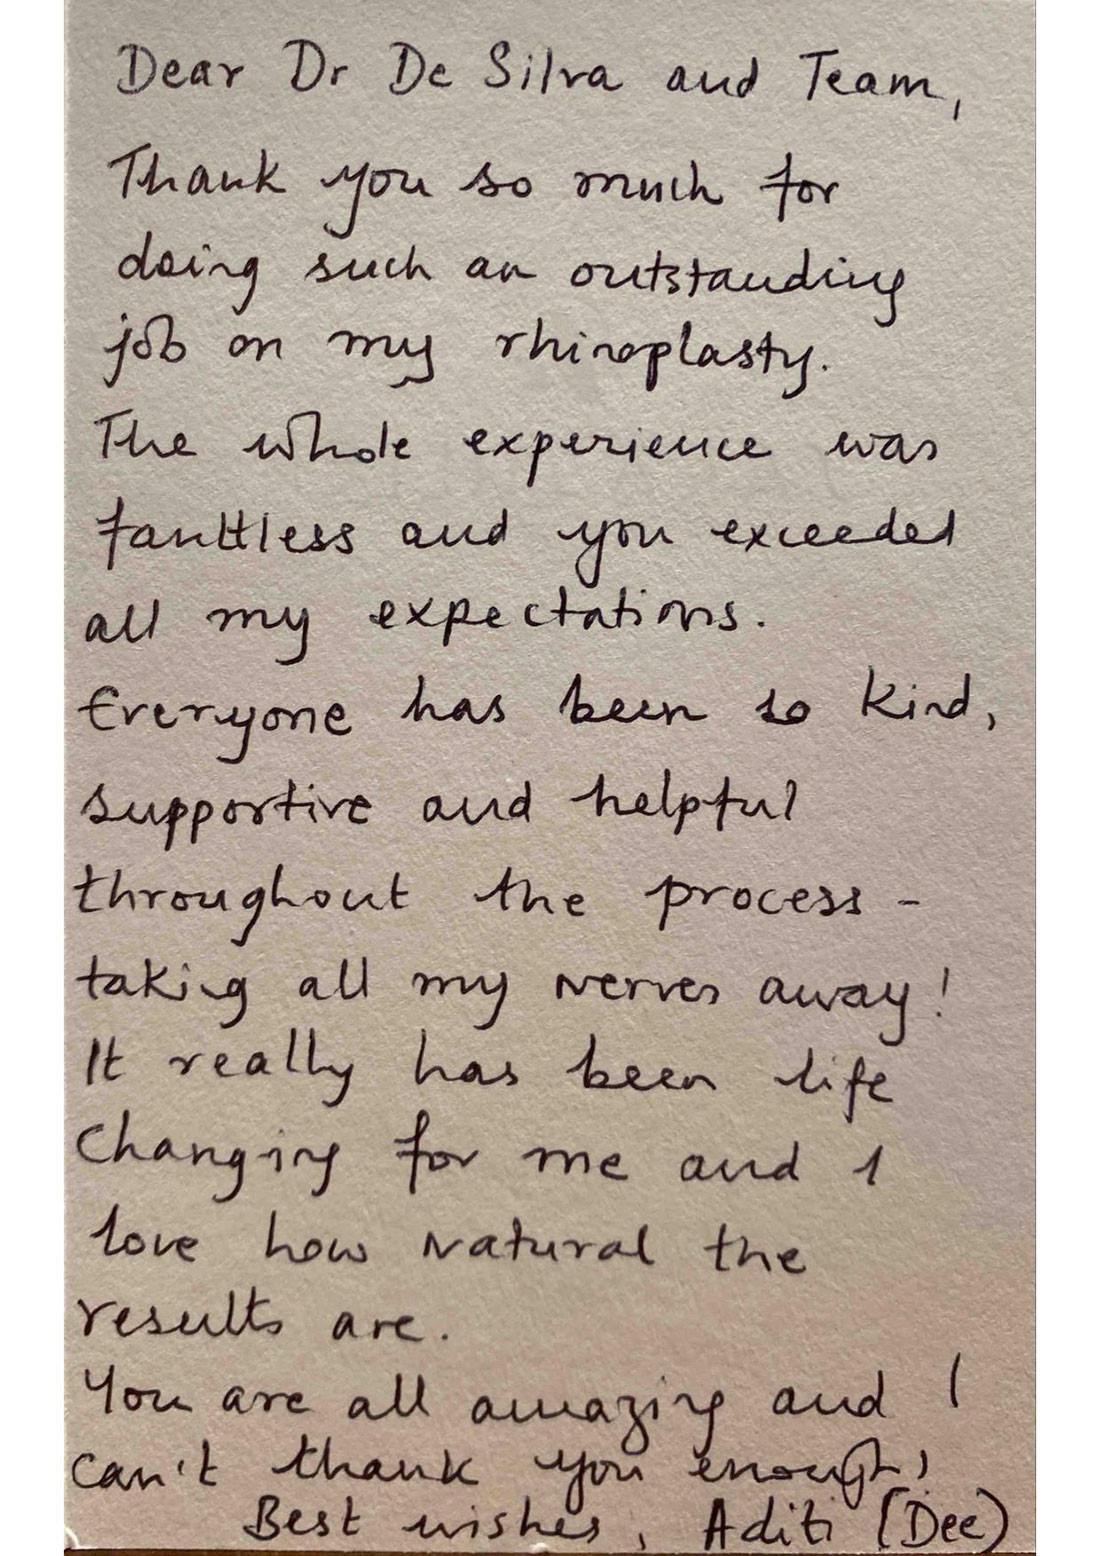 Dear Dr De Silva and Team,
Thank you so much for
doing such an outstanding
job on my rhinoplasty.
The whole experience was
faultless and you exceeded
all my expectations.
Everyone has been so kind,
supportive and helpful
throughout the process -
taking all my nerves away!
It really has been life
changing for me and I
love how natural the
results are.
You are all amazing and I
can't thank you enough!
Best wishes, Aditi (Dee)